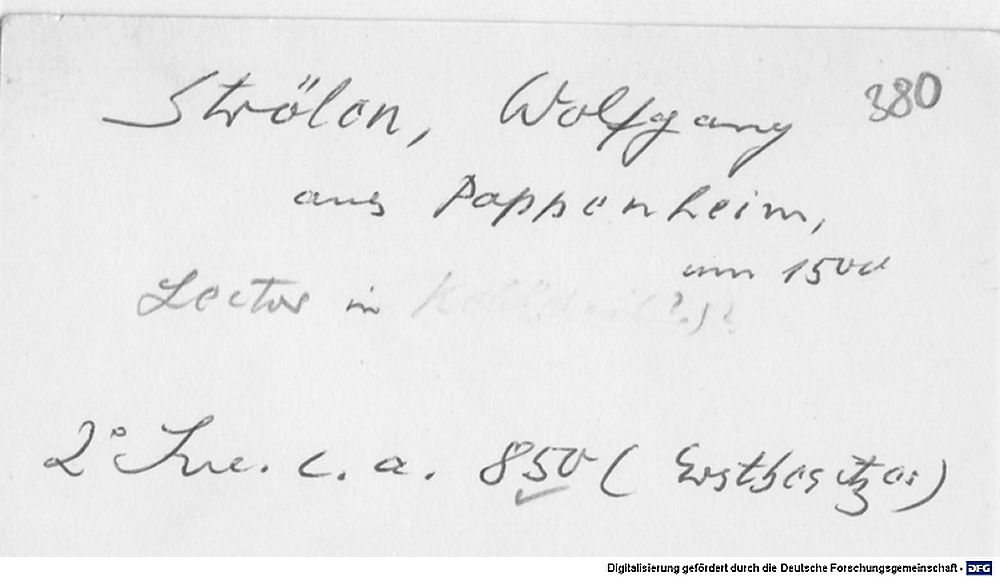 Strölen, Wolfgang 380
aus Pappenheim,
um 1500
Lector in
2° Inc. c. a. 850 (Erstbesitzer)
Digitalisierung gefördert durch die Deutsche Forschungsgemeinschaft - DFG